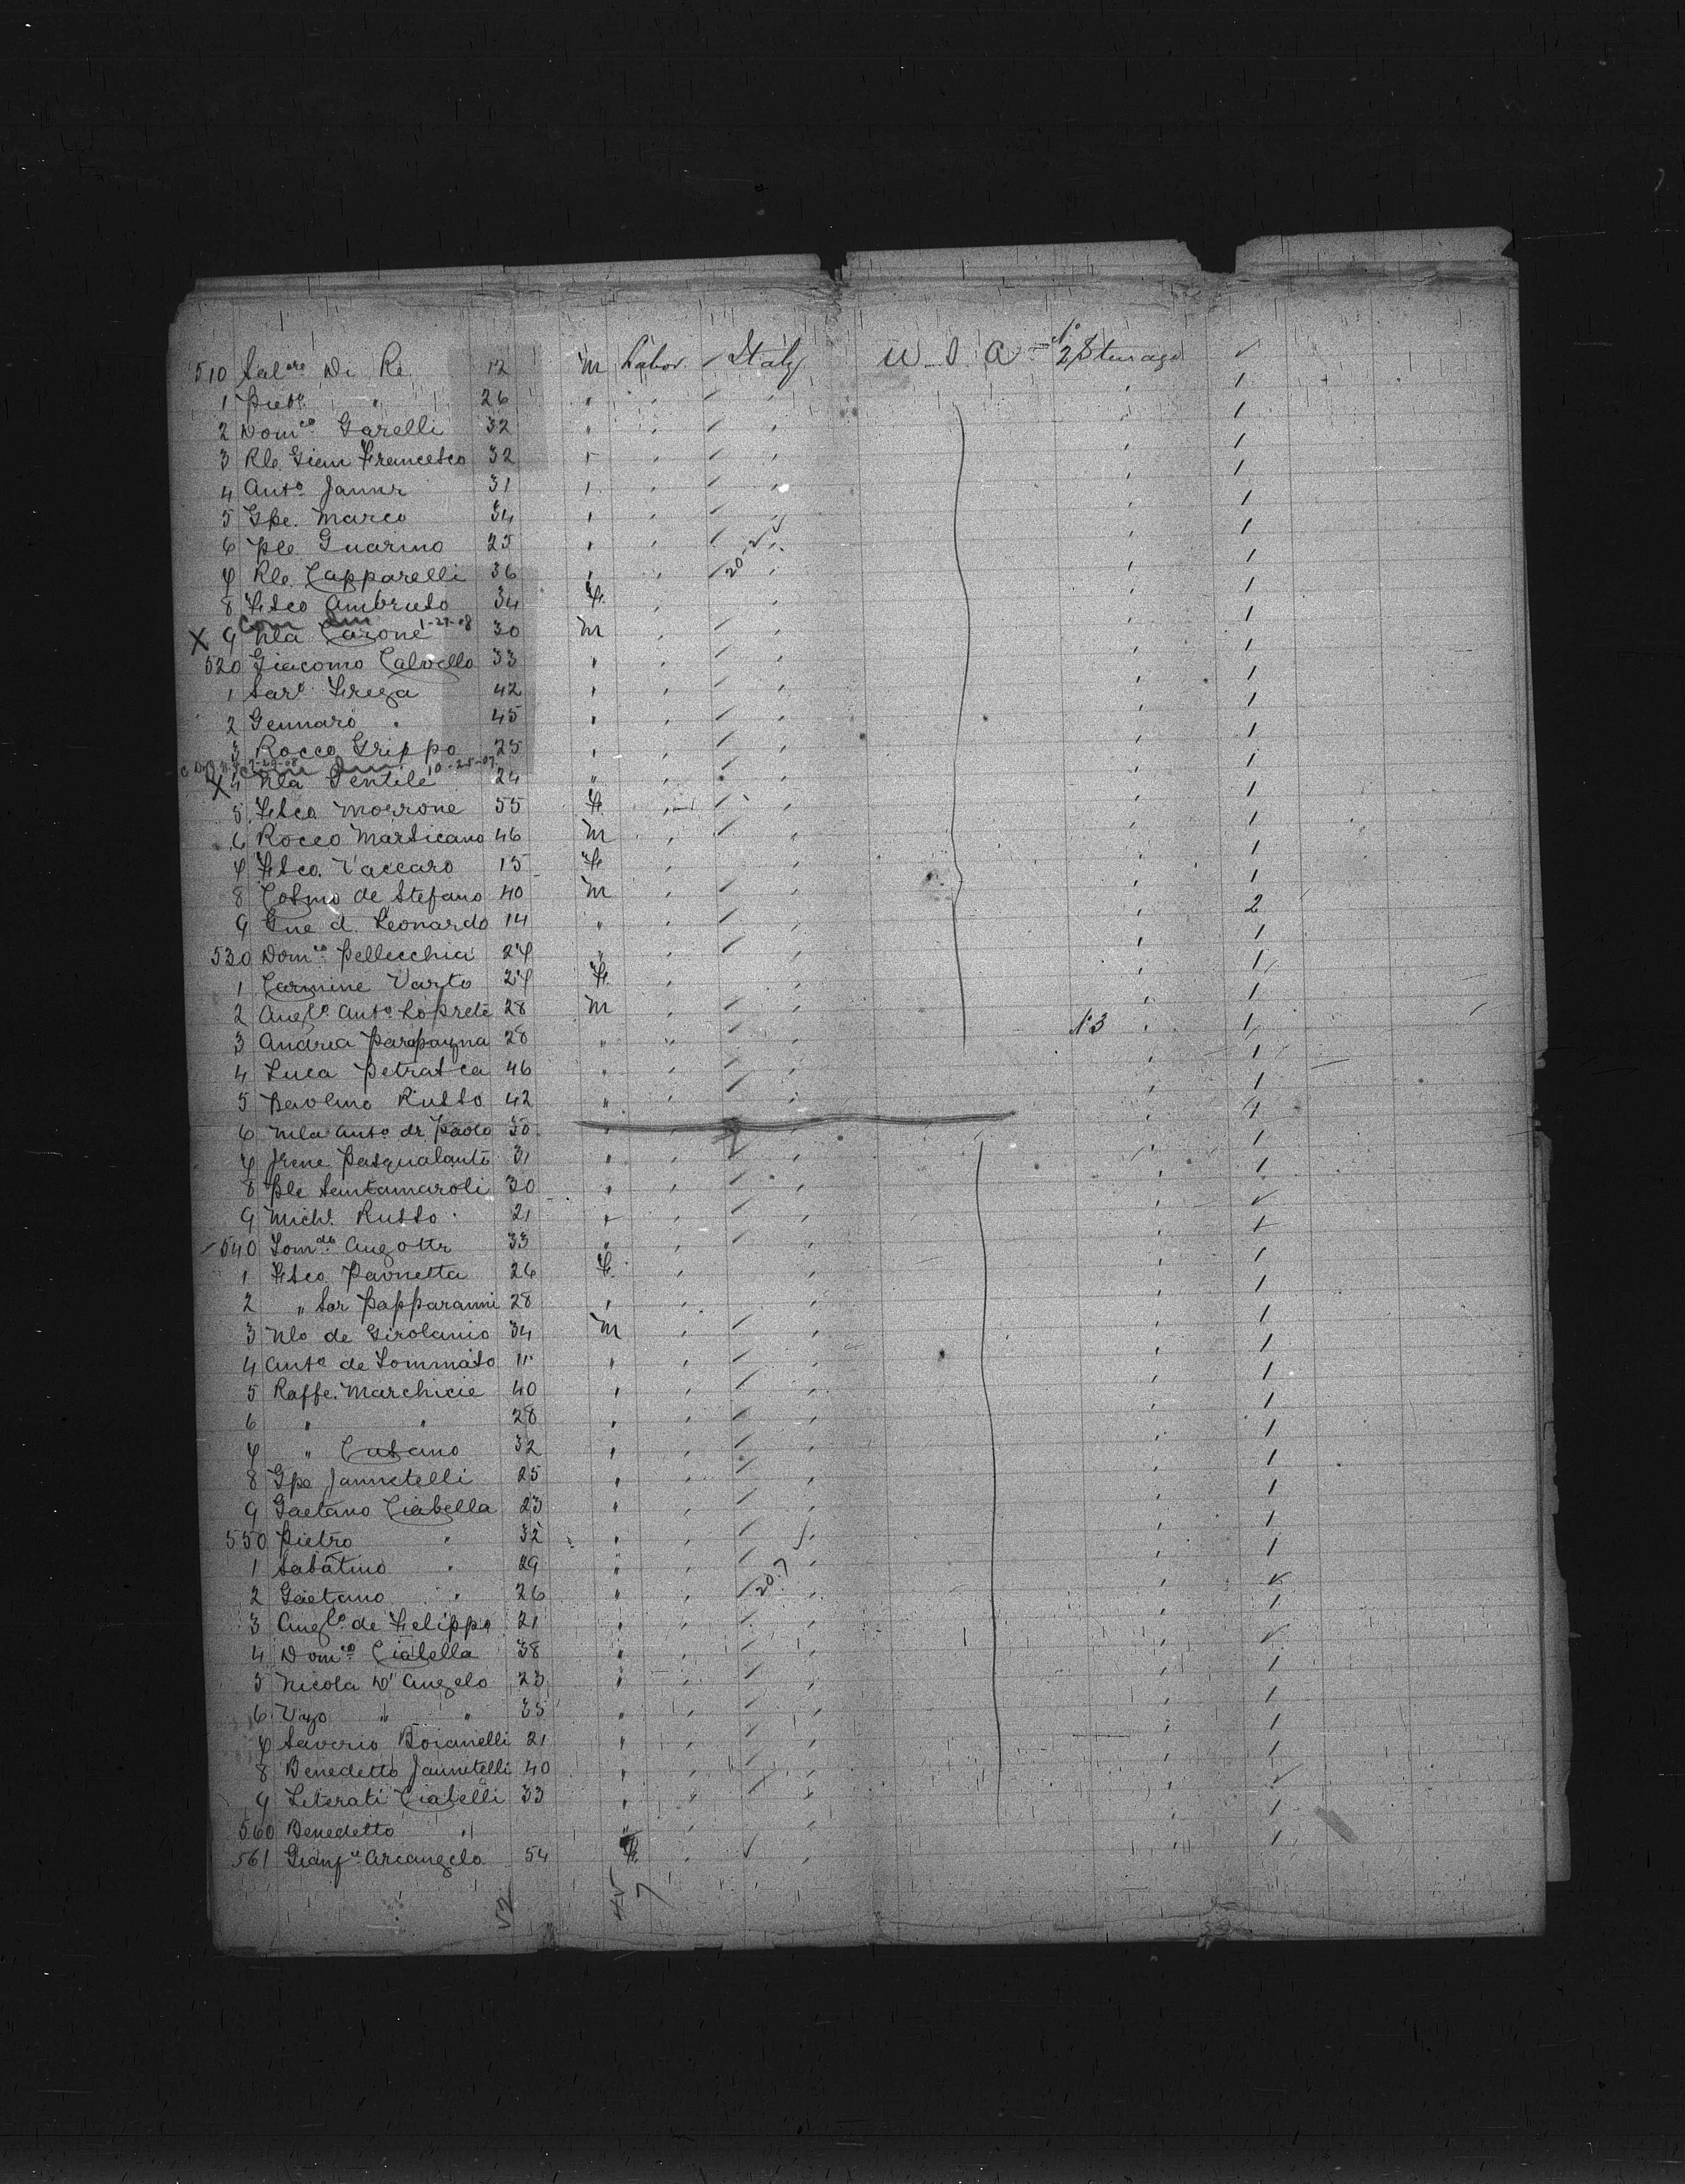 510 Salore Di Re 12 m Labor. / Italy U.S.A = No 2 Sterage ✓
1 Pieto " 26 " / 1
2 Domco Garelli 32 " / 1
3 Rle Gian Francesco 32 / 1
4 Anto Jannr 31 / 1
5 Gpe. Marco 34 / 1
6 Ple Guarino 25 / 1
7 Rle. Capparelli 36 / 20 1
8 Fsco Ambruso 34 F. 1
Com 1-29-08
X 9 Nla Carone 30 m / 1
520 Giacomo Calvello 33 / 1
1 Sare Frega 42 / 1
2 Gennaro " 45 / 1
3 Rocco Grippo 25 / 1
10-25-07
X 4 Nla Gentile 24 " / 1
5 Fsco Morrone 55 F. / 1
6 Rocco Marsicano 46 m / 1
7 Fsco. Vaccaro 15 F 1
8 Cosmo de Stefano 40 m / 1
9 Gne d. Leonardo 14 " / 2
530 Domco Pellecchia 27 " / 1
1 Carmine Varto 27 F. 1
2 Anglo Anto Loprete 28 m / 1
3 Andrea Parapagna 28 " / No 3 1
4 Luca Petrasca 46 " / 1
5 Paolino Russo 42 " / 1
6 Nla Anto di Paolo 30 1
7 Irene Pasqualante 31 " / 1
8 Ple Santamaroli 30 " / 1
9 Michl. Russo 21 / ✓
540 Tomdo Angotti 33 " / 1
1 Fsco Paonessa 26 F. 1
2 " Sar Papparanni 28 1
3 Nlo de Girolamo 34 m / 1
4 Anto de Tommaso 11 / 1
5 Raffe. Marchicie 40 / 1
6 " " 28 / 1
7 " Cusano 32 / 1
8 Gpe Jannetelli 25 / 1
9 Gaetano Ciabella 23 / 1
550 Pietro " 32 / 1
1 Sabatino " 29 " / 1
2 Gaetano " 26 " / 20 ✓
3 Anglo de Felippo 21 / 1
4 Domco Ciabella 38 " / ✓
5 Nicola D'Angelo 23 " / 1
6 Vazo " " 35 " / 1
7 Saverio Boianelli 21 / 1
8 Benedetto Jannetelli 40 / 1
9 Literati Ciabelli 33 / ✓
560 Benedetto " " 1
561 Gianfco Arcangelo 54 F. ✓ 1
52 45 7